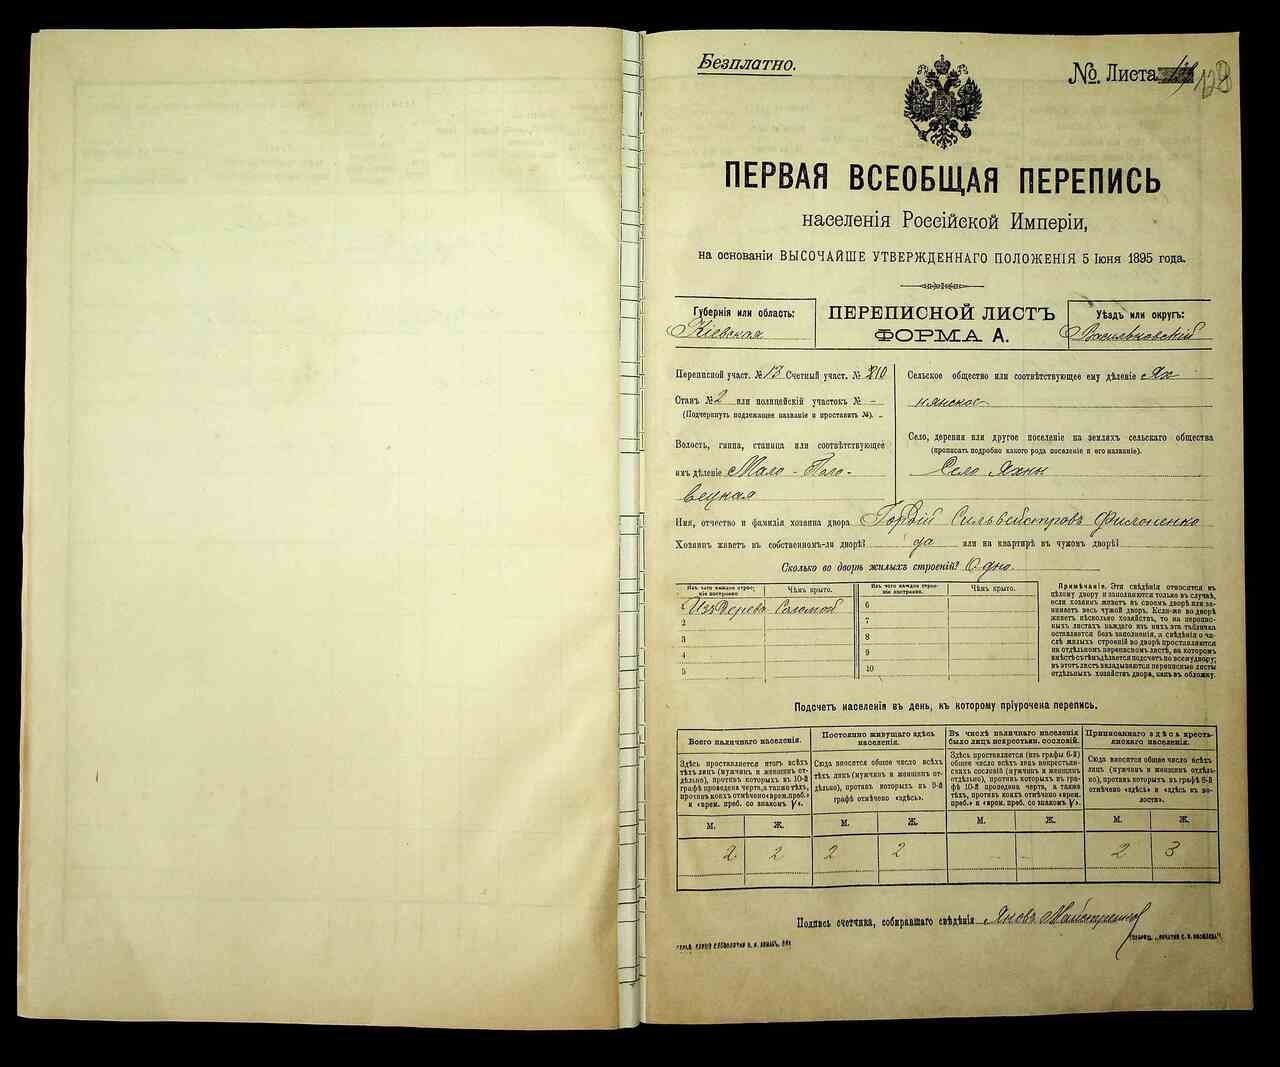 Безплатно.
№. Листа 128
ПЕРВАЯ ВСЕОБЩАЯ ПЕРЕПИСЬ
населенія Россійской Имперіи,
на основаніи ВЫСОЧАЙШЕ УТВЕРЖДЕННАГО ПОЛОЖЕНІЯ 5 Іюня 1895 года.
Губернія или область:
Кіевская
ПЕРЕПИСНОЙ ЛИСТЪ
ФОРМА А.
Уѣздъ или округъ:
Васильковскій
Переписной участ. № 13 Счетный участ. № 210
Станъ № 2 или полицейскій участокъ № -
(Подчеркнуть подлежащее названіе и проставить №).
Волость, гмина, станица или соотвѣтствующее
имъ дѣленіе Мало-Поло-
вецкая
Сельское общество или соотвѣтствующее ему дѣленіе Ях
нянское
Село, деревня или другое поселеніе на земляхъ сельскаго общества
(прописать подробно какого рода поселеніе и его названіе).
Село Яхны
Имя, отчество и фамилія хозяина двора Гордій Сильвестровъ Филоненко
Хозяинъ живетъ въ собственномъ-ли дворѣ? да или на квартирѣ въ чужомъ дворѣ?
Сколько во дворѣ жилыхъ строеній? Одно.
Изъ чего каждое строе-
ніе построено.
Чѣмъ крыто.
Изъ чего каждое строе-
ніе построено.
Чѣмъ крыто.
Изъ Дерева Соломой
2
3
4
5
6
7
8
9
10
Примѣчаніе. Эти свѣдѣнія относятся къ
цѣлому двору и заполняются только въ случаѣ,
если хозяинъ живетъ въ своемъ дворѣ или за-
нимаетъ весь чужой дворъ. Если-же во дворѣ
живетъ нѣсколько хозяйствъ, то на перепис-
ныхъ листахъ каждаго изъ нихъ эта табличка
оставляется безъ заполненія, а свѣдѣнія о чи-
слѣ жилыхъ строеній во дворѣ проставляются
на отдѣльномъ переписномъ листѣ, на которомъ
вмѣстѣ съ тѣмъ дѣлается подсчетъ по всему двору;
въ этотъ листъ вкладываются переписные листы
отдѣльныхъ хозяйствъ двора, какъ въ обложку.
Подсчетъ населенія въ день, къ которому пріурочена перепись.
Всего наличнаго населенія.
Здѣсь проставляется итогъ всѣхъ
тѣхъ лицъ (мужчинъ и женщинъ от-
дѣльно), противъ которыхъ въ 10-й
графѣ проведена черта, а также тѣхъ,
противъ коихъ отмѣчено «врем. преб.»
и «врем. преб. со знакомъ V».
Постоянно живущаго здѣсь
населенія.
Сюда вносится общее число всѣхъ
тѣхъ лицъ (мужчинъ и женщинъ от-
дѣльно), противъ которыхъ въ 9-й
графѣ отмѣчено «здѣсь».
Въ числѣ наличнаго населенія
было лицъ некрестьян. сословій.
Здѣсь проставляется (изъ графы 6-й)
общее число всѣхъ лицъ некрестьян-
скихъ сословій (мужчинъ и женщинъ
отдѣльно), противъ которыхъ въ гра-
фѣ 10-й проведена черта, а также
тѣхъ, противъ коихъ отмѣчено «врем.
преб.» и «врем. преб. со знакомъ V».
Приписаннаго здѣсь кресть-
янскаго населенія.
Сюда вносится общее число всѣхъ
лицъ (мужчинъ и женщинъ отдѣль-
но), противъ которыхъ въ графѣ 8-й
отмѣчено «здѣсь» и «здѣсь въ во-
лости».
М. Ж. М. Ж. М. Ж. М. Ж.
2 2 2 2 - - 2 3
Подпись счетчика, собиравшаго свѣдѣнія